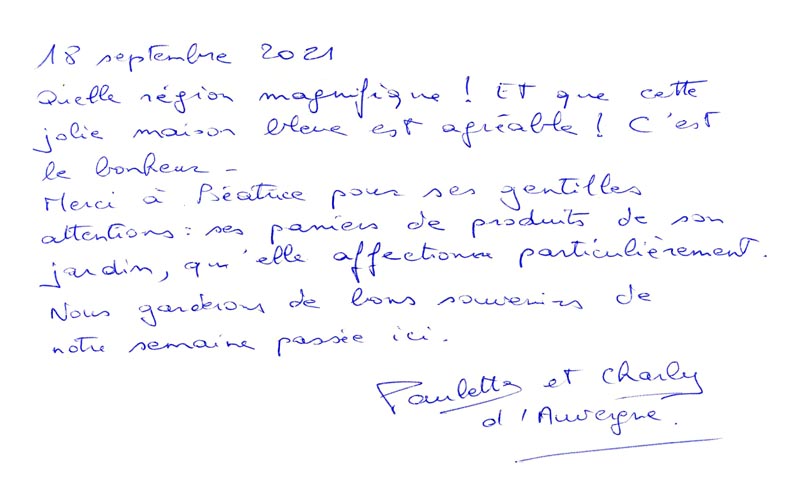 18 septembre 2021
Quelle région magnifique ! Et que cette
jolie maison bleue est agréable ! C'est
le bonheur -
Merci à Béatrice pour ses gentilles
attentions : ses paniers de produits de son
jardin, qu'elle affectionne particulièrement.
Nous garderons de bons souvenirs de
notre semaine passée ici.
Paulette et Charly
d'Auvergne.